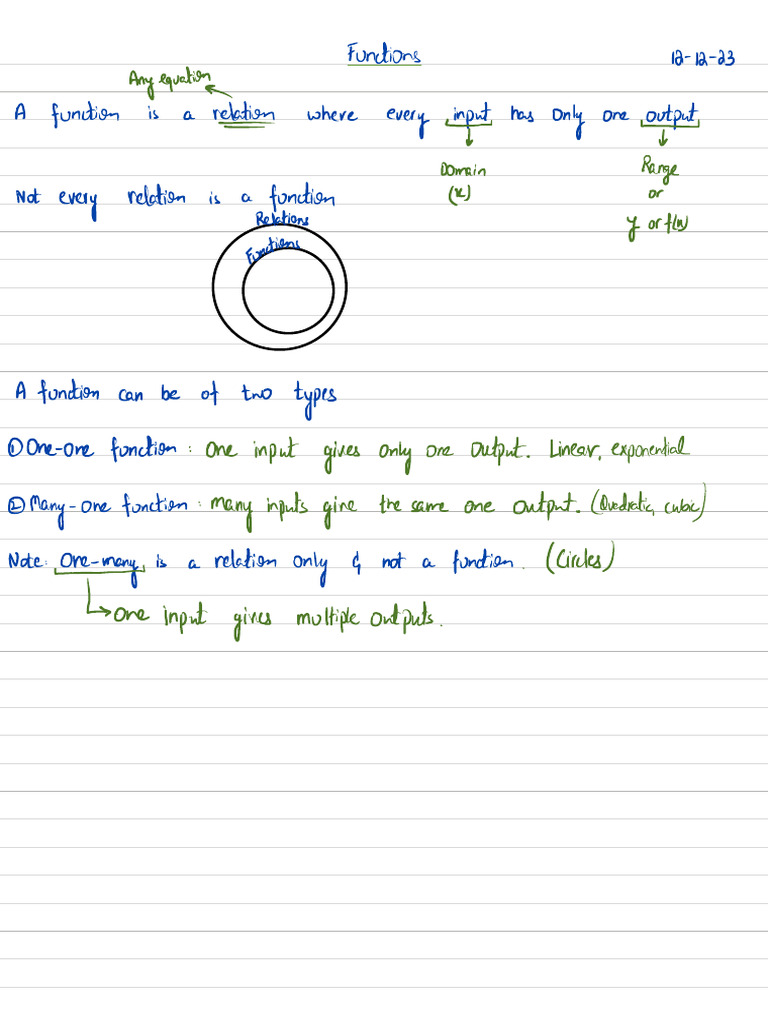 Functions
12-12-23
Any equation
A function is a relation where every input has only one output
Domain
(x)
Range
or
y or f(x)
Not every relation is a function
Relations
Functions
A function can be of two types
① One-one function: One input gives only one output. Linear, exponential
② Many-one function: many inputs give the same one output. (Quadratic, cubic)
Note: One-many is a relation only & not a function. (Circles)
One input gives multiple outputs.